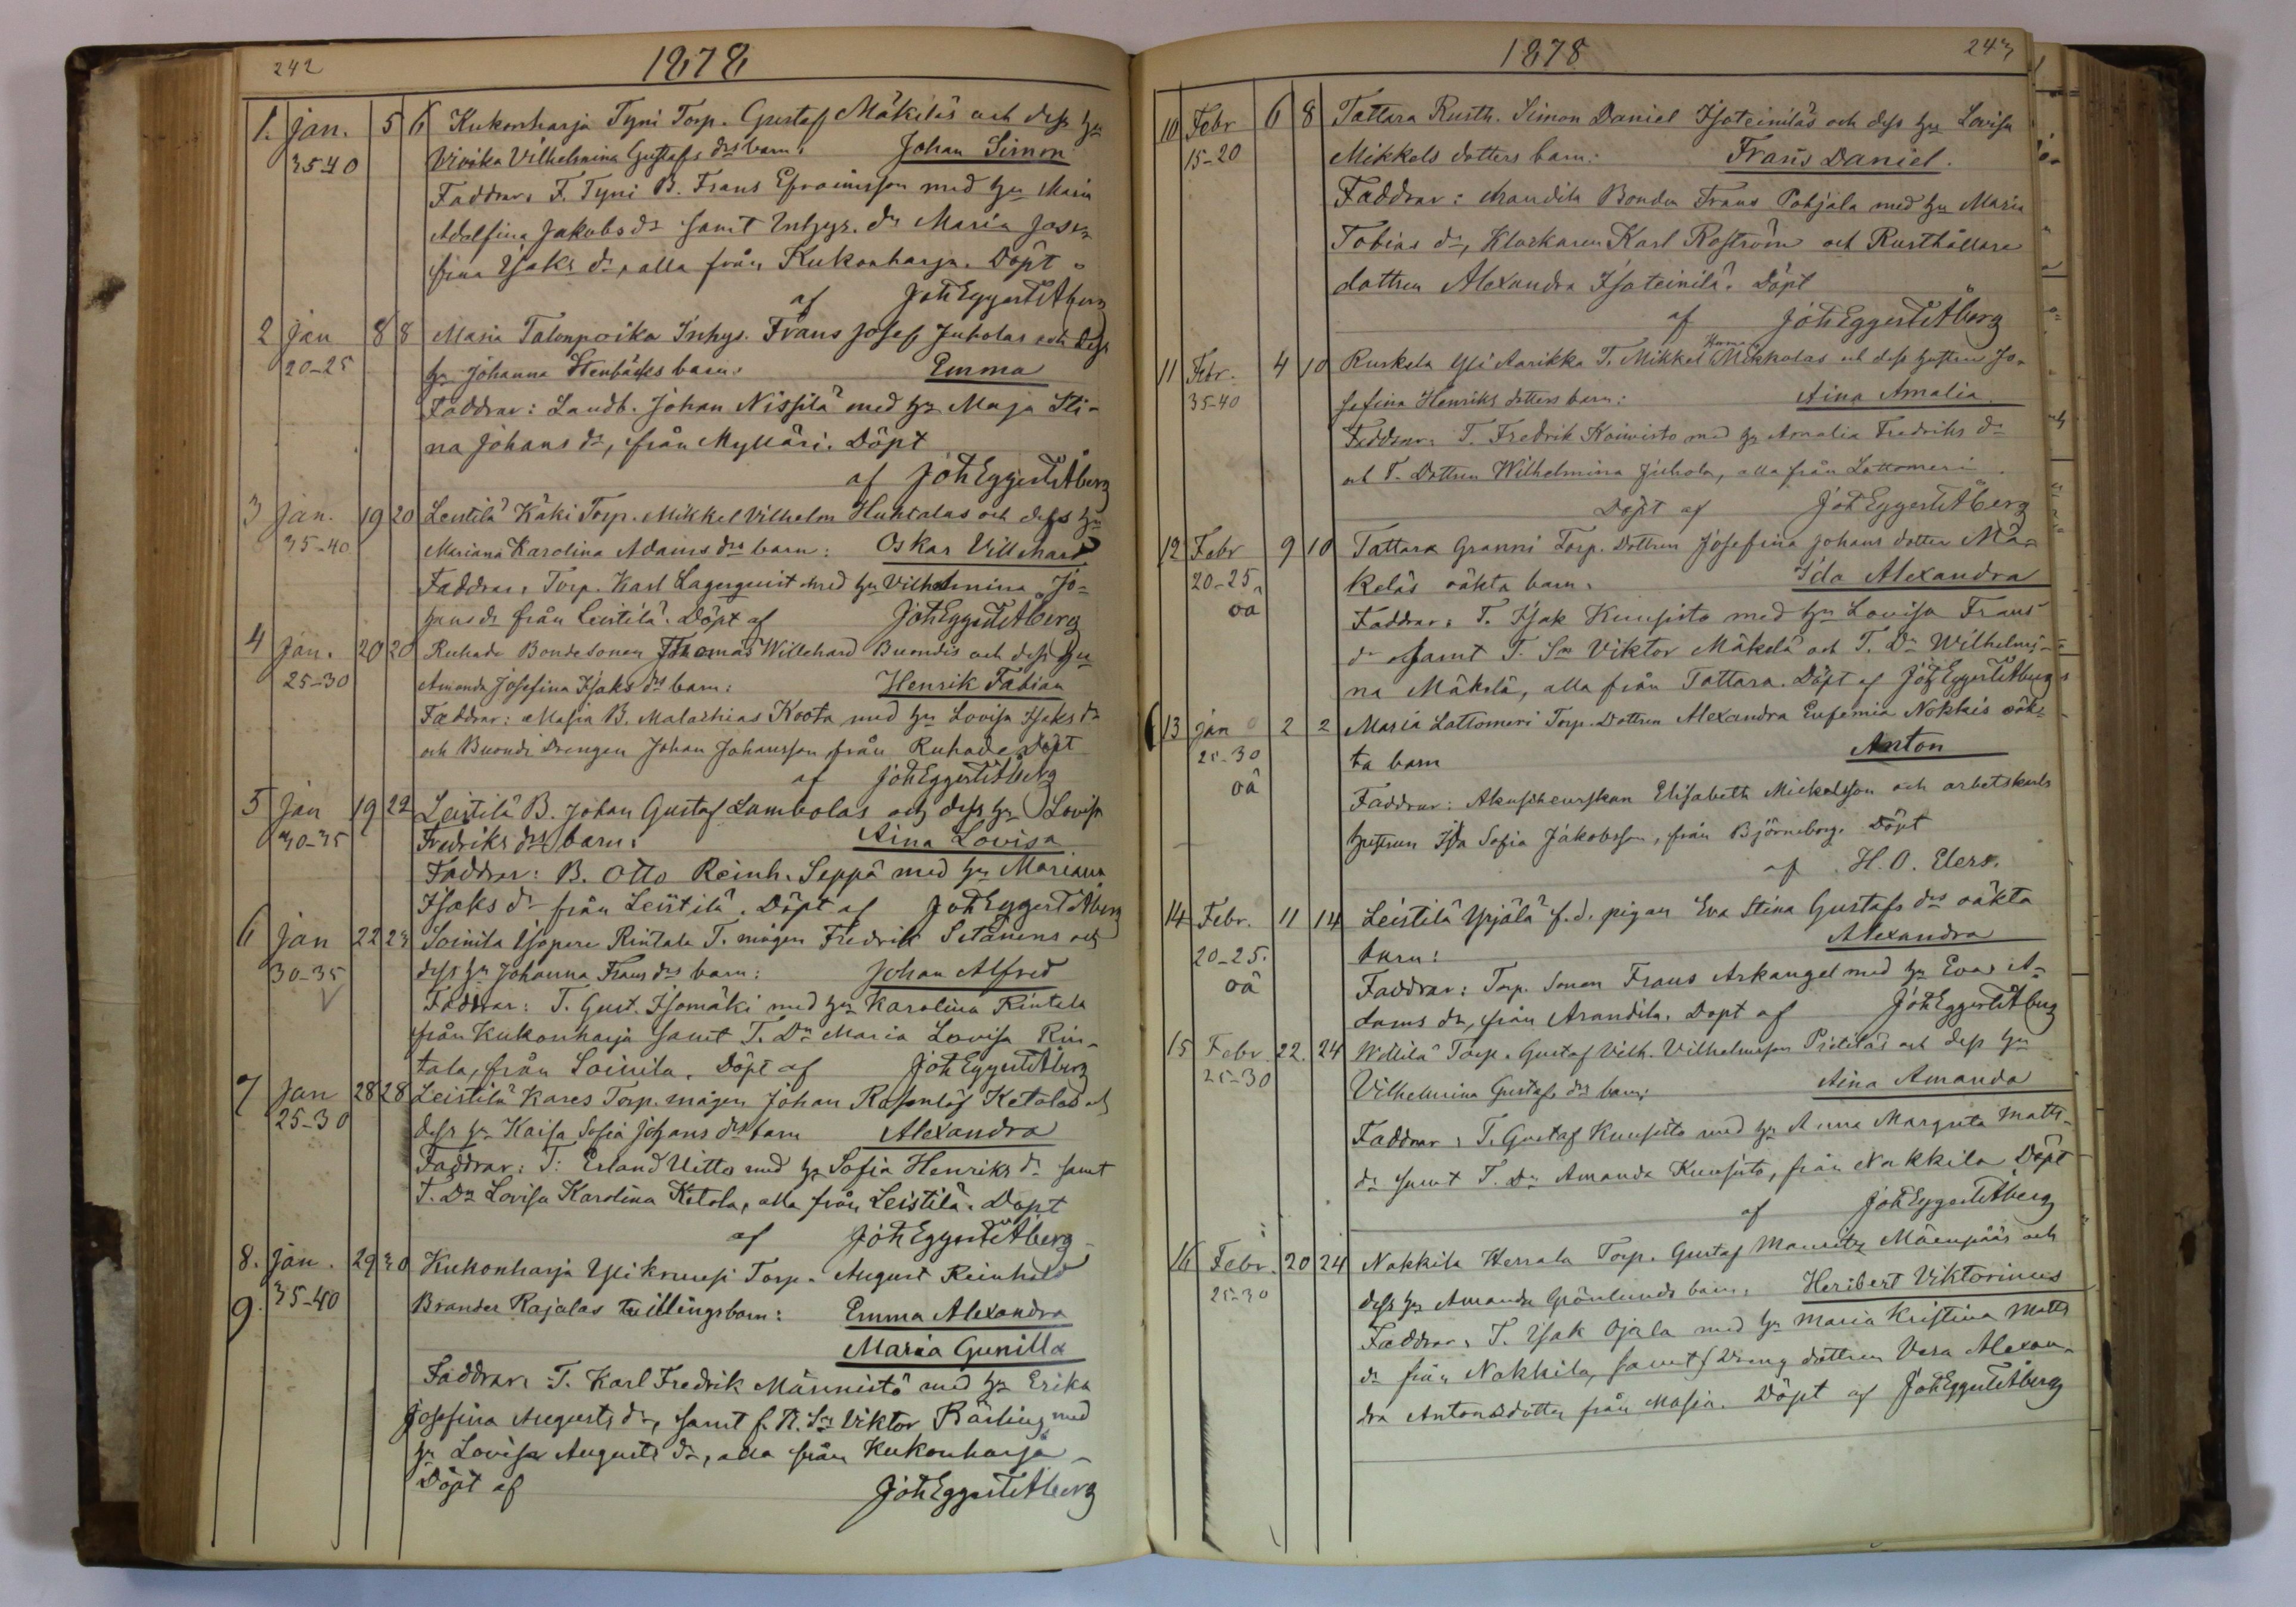 242
1878
1. Jan. 5 6 Kukonharja Tyni Torp. Gustaf Mäkiläs och dess hu
35-40 Vivika Vilhelmina Gustafs drs barn: Johan Simon
Faddrar: F. Tyni B. Frans Efraimsson med hu Maria
Adolfina Jakobs dr samt Inhys. dr Maria Jose-
fina Isaks dr, alla från Kukonharja. Döpt
af Joh Eggert Åberg
2 Jan 8 8 Masia Talonpoika Inhys. Frans Josef Juholas och dess
20-25 hu Johanna Stenbäcks barn: Emma
Faddrar: Landb. Johan Nissilä med hu Maja Sti-
na Johans dr, från Mylläri. Döpt
af Joh Eggert Åberg
3 Jan. 19 20 Leistilä Käki Torp. Mikkel Vilhelm Huhtalas och dess hu
35-40 Mariana Karolina Adams drs barn: Oskar Villehard
Faddrar: Torp. Karl Lagerquist med hu Vilhelmina Jo-
hans dr från Leistilä. Döpt af Joh Eggert Åberg
4 Jan. 20 20 Ruhade Bondesonen Thomas Willehard Buondis och dess hu
25-30 Amanda Josefina Isaks drs barn: Henrik Fabian
Faddrar: Masia B. Malachias Koota med hu Lovisa Isaks dr
och Buondi Drengen Johan Johansson från Ruhade Döpt
af Joh Eggert Åberg
5 Jan 19 22 Leistilä B. Johan Gustaf Lambolas och dess hu Lovisa
30-35 Fredriks drs barn: Aina Lovisa
Faddrar: B. Otto Reinh. Seppä med hu Mariana
Isaks dr från Leistilä. Döpt af Joh Eggert Åberg
6 Jan 22 23 Soinila Isopere Rintala T. mågen Fredrik Setänens och
30-35 dess hu Johanna Frans drs barn: Johan Alfred
Faddrar: T. Gust. Isomäki med hu Karolina Rintala
från Kukonharja samt T. Dr Maria Lovisa Rin-
tala, från Soinila. Döpt af Joh Eggert Åberg
7 Jan 28 28 Leistilä Kares Torp. mågen Johan Rosenlöf Ketolas och
25-30 dess hu Kaisa Sofia Johans drs barn Alexandra
Faddrar: T. Erland Uitto med hu Sofia Henriks dr samt
T. Dr Lovisa Karolina Ketola, alla från Leistilä. Döpt
af Joh Eggert Åberg
8. Jan. 29 30 Kukonharja Ylikruusi Torp. August Reinhold
9. 35-40 Brander Rajalas tvillingsbarn: Emma Alexandra
Maria Gunilla
Faddrar: T. Karl Fredrik Männistö med hu Erika
Josefina Augusts dr, samt f. R. Sn Viktor Rärling med
hu Lovisa Augusts dr, alla från Kukonharja
Döpt af Joh Eggert Åberg
1878
243
10 Febr 6 8 Tattara Rusth. Simon Daniel Isoteiniläs och dess hu Lovisa
15-20 Mikkels dotters barn: Frans Daniel.
Faddrar: Arandila Bonden Frans Pohjala med hu Maria
Tobias dr, Klockaren Karl Roström och Rusthållare
dottren Alexandra Isoteinilä. Döpt
af Joh Eggert Åberg
11 Febr. 4 10 Ruskela Yli Aarikka T. Mikkel Mikkolas och dess hustru Jo-
35-40 sefina Henriks dotters barn: Aina Amalia
Faddrar: T. Fredrik Koivisto med hu Amalia Fredriks dr
och T. Dottren Wilhelmina Juhola, alla från Lattomeri.
Döpt af Joh Eggert Åberg
12 Febr 9 10 Tattara Granni Torp. Dottren Josefina Johans dotter Mä-
20-25 keläs oäkta barn: Ida Alexandra
oä Faddrar: T. Isak Kuusisto med hu Lovisa Frans
dr samt T. Sn Viktor Mäkelä och T. Dr Wilhelmi-
na Mäkelä, alla från Tattara. Döpt af Joh Eggert Åberg
13 Jan 2 2 Masia Lattomeri Torp. Dottren Alexandra Eufemia Nokkis oäk-
25-30 ta barn Anton
oä Faddrar: Akuscheurskan Elisabeth Mickelsson och arbetskarls
hustrun Ida Sofia Jakobsson, från Björneborg. Döpt
af H. O. Elers.
14 Febr. 11 14 Leistilä Yrjälä f.d. pigan Eva Stina Gustafs drs oäkta
20-25. barn: Alexandra
oä Faddrar: Torp. Sonen Frans Arkangel med hu Eva A-
dams dr, från Arandila. Döpt af Joh Eggert Åberg
15 Febr. 22. 24 Willilä Torp. Gustaf Vilh. Vilhelmsson Pietiläs och dess hu
25-30 Vilhelmina Gustafs drs barn: Aina Amanda
Faddrar: T. Gustaf Kuusisto med hu Anna Margreta Matts
dr samt T. Dr Amanda Kuusisto, från Nakkila Döpt
af Joh Eggert Åberg
16 Febr. 20 24 Nakkila Herrala Torp. Gustaf Mauritz Mäenpääs och
25-30 dess hu Amanda Grönlunds barn: Heribert Viktorinus
Faddrar: T. Isak Ojala med hu Maria Kristina Matts
dr från Nakkila, samt Dreng dottren Vera Alexan-
dra Antonsdotter från Masia. Döpt af Joh Eggert Åberg